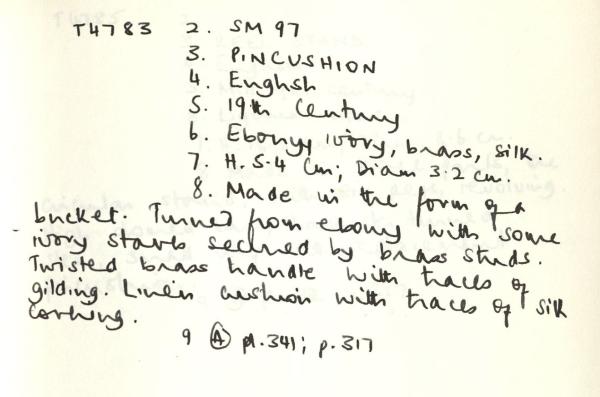 T4783 2. SM 97
3. PINCUSHION
4. English
5. 19th Century
6. Ebony, ivory, brass, silk.
7. H. 5.4 cm; Diam 3.2 cm.
8. Made in the form of a
bucket. Turned from ebony with some
ivory staves secured by brass studs.
Twisted brass handle with traces of
gilding. Linen cushion with traces of silk
9 (A) pl. 341; p. 317